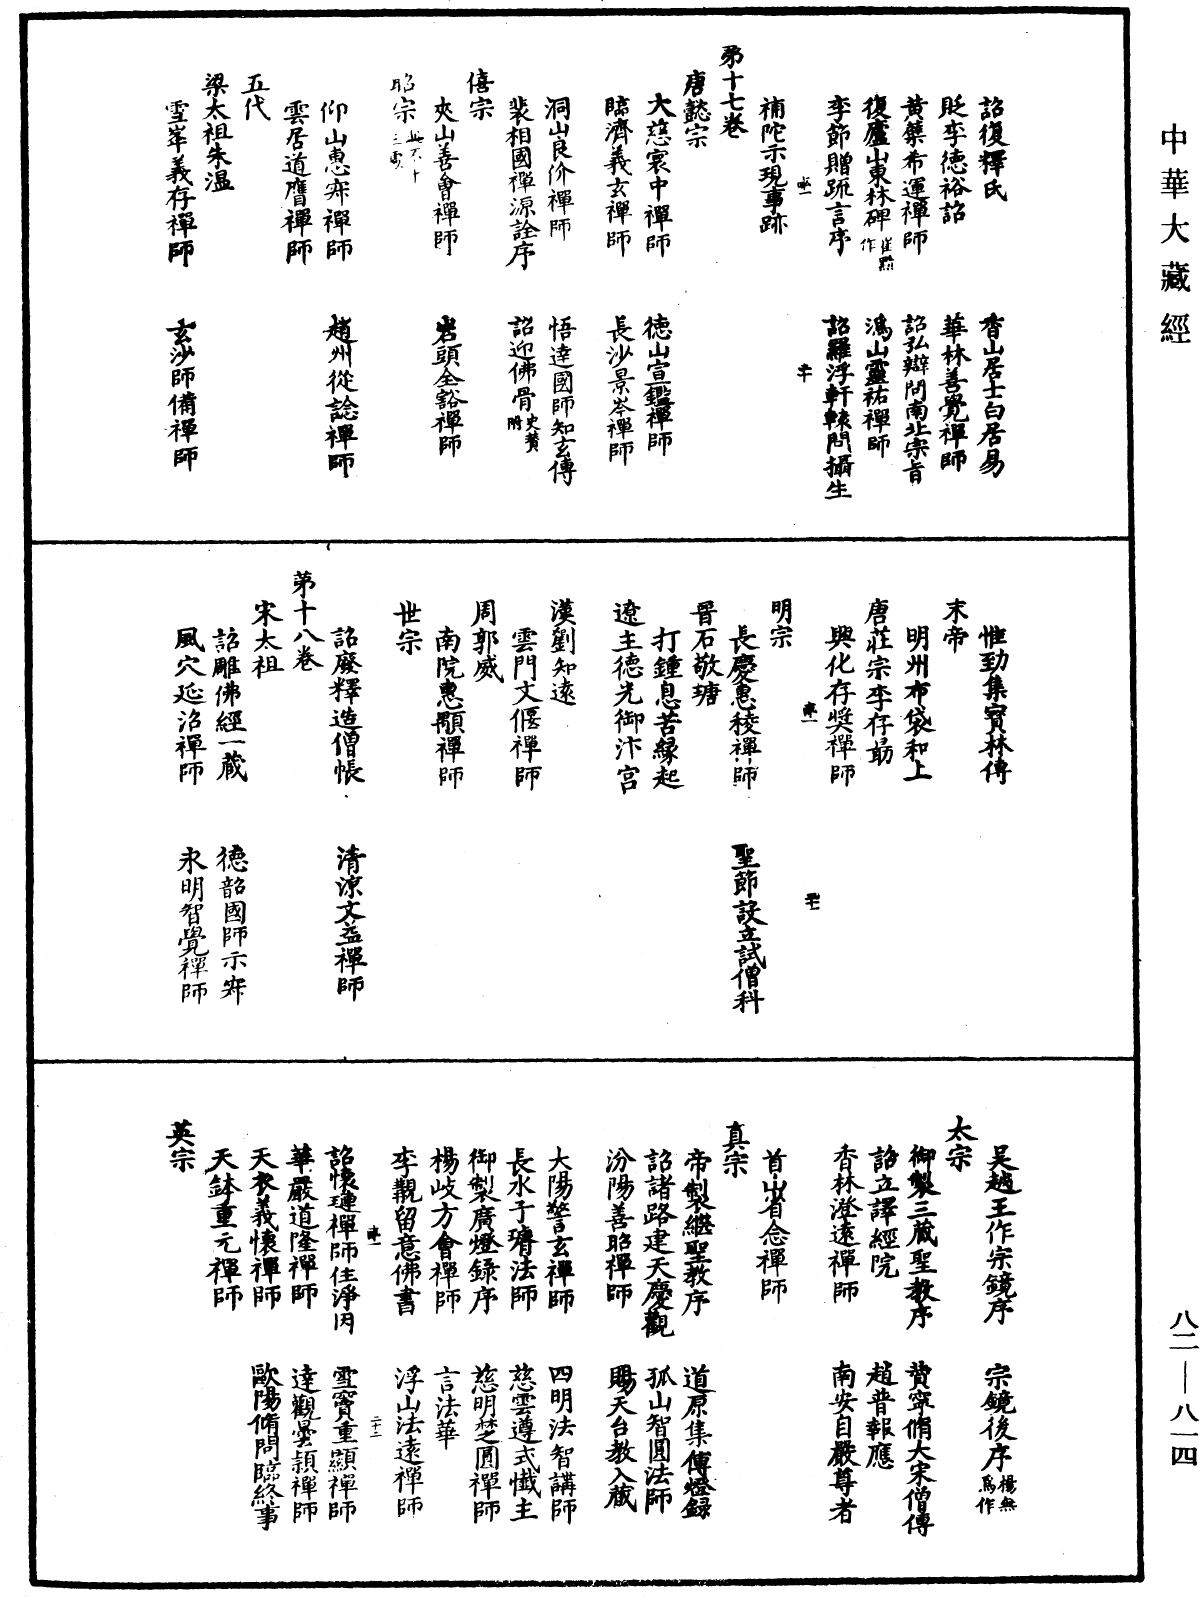 中華大藏經
詔復釋氏　香山居士白居易
貶李德裕詔　華林善覺禪師
黃蘗希運禪師　詔弘辯問南北宗旨
復廬山東林碑崔黯作　溈山靈祐禪師
李節贈疏言序　詔羅浮軒轅問攝生
補陀示現事跡
弟十七卷
唐懿宗
大慈寰中禪師　德山宣鑑禪師
臨濟義玄禪師　長沙景岑禪師
洞山良价禪師　悟達國師知玄傳
裴相國禪源詮序　詔迎佛骨史贊附
僖宗
夾山善會禪師　岩頭全豁禪師
昭宗
仰山惠寂禪師　趙州從諗禪師
雲居道膺禪師
五代
梁太祖朱溫
雪峯義存禪師　玄沙師備禪師
惟勁集寶林傳
末帝
明州布袋和上
唐莊宗李存勗
興化存奬禪師
明宗
長慶惠稜禪師　聖節設立試僧科
晉石敬瑭
打鍾息苦緣起
遼主德光御汴宮
漢劉知遠
雲門文偃禪師
周郭威
南院惠顒禪師
世宗
詔廢釋造僧帳　清涼文益禪師
第十八卷
宋太祖
詔雕佛經一藏　德韶國師示寂
風穴延沼禪師　永明智覺禪師
吳越王作宗鏡序　宗鏡後序楊無為作
太宗
御製三藏聖教序　贊寧脩大宋僧傳
詔立譯經院　趙普報應
香林澄遠禪師　南安自嚴尊者
首山省念禪師
真宗
帝製繼聖教序　道原集傳燈錄
詔諸路建天慶觀　孤山智圓法師
汾陽善昭禪師　賜天台教入藏
大陽警玄禪師　四明法智講師
長水子璿法師　慈雲遵式懺主
御製廣燈錄序　慈明楚圓禪師
楊岐方會禪師　言法華
李覯留意佛書　浮山法遠禪師
詔懷璉禪師住淨因　雪竇重顯禪師
華嚴道隆禪師　達觀曇穎禪師
天衣義懷禪師　歐陽脩問臨終事
天鉢重元禪師
英宗
八二—八一四